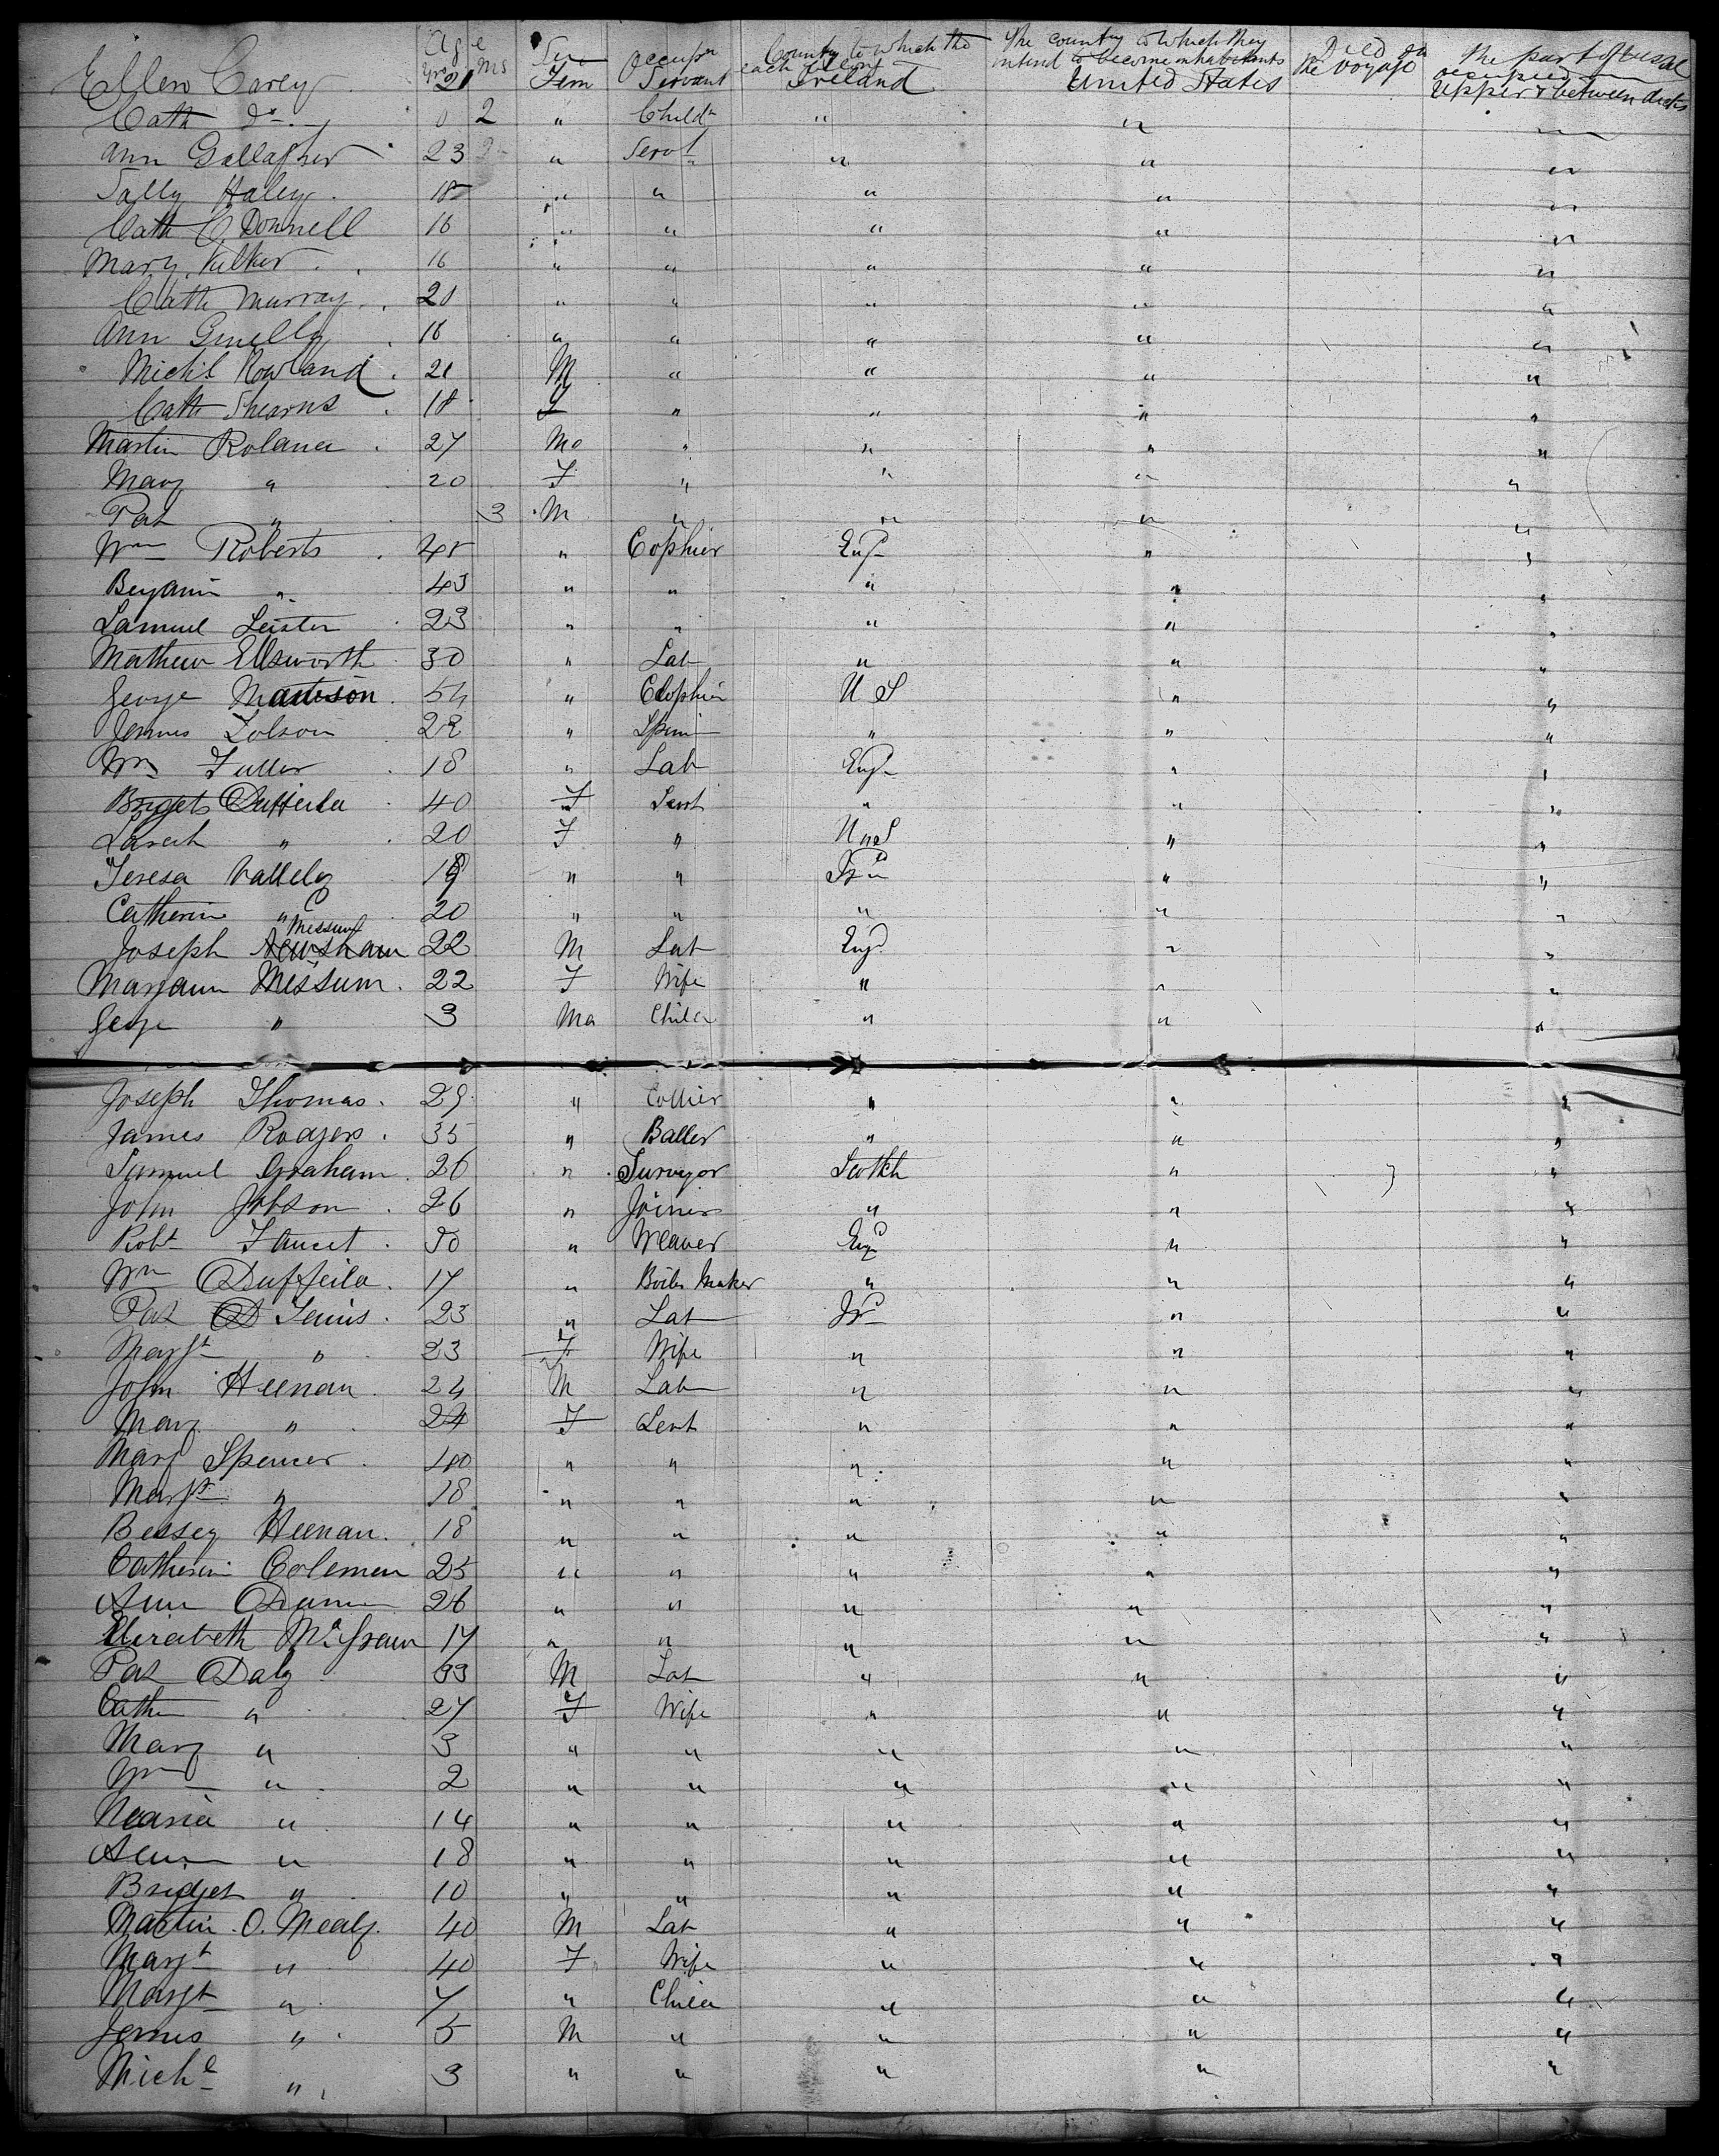 Age Sex Occupn Country to which the The country to which they Died on The part of vessel
Yrs Ms each belong intend to become inhabitants the voyage occupied
Ellen Carey 21 Fem Servant Ireland United States Upper & between decks
Cath Do 0 2 " Child " " "
Ann Gallagher 23 " Servt " " "
Sally Haley 18 " " " " "
Cath O'Donnell 16 " " " " "
Mary Kilker 16 " " " " "
Cath Murray 20 " " " " "
Ann 16 " " " " "
Michl Rowland 21 M " " " "
Cath Shearns 18 F " " " "
Martin Roland 27 Ma " " " "
Mary " 20 F " " " "
Pat " 3 M " " " "
Wm Roberts 45 " Eng " "
Benjamin " 43 " " " " "
Samuel Leister 23 " " " " "
Mathew Ellsworth 30 " Lab " " "
George 54 " U S " "
James 22 " " " "
Wm Fuller 18 " Lab Eng " "
Bridget Duffeild 40 F Servt " " "
Sarah " 20 F " U S " "
Teresa Vallely 19 " " Ird " "
Catherine " 20 " " " " "
Messum
Joseph Newsham 22 M Lab Engd " "
Maryann Messum 22 F Wife " " "
George " 3 Ma Child " " "
Joseph Thomas 29 " Collier " " "
James Rodgers 35 " Baller " " "
Samuel Graham 26 " Surveyor Scotch " "
John Jobson 26 " Joiner " " "
Robt Faucet 50 " Weaver Engd " "
Wm Duffeild 17 " Boiler Maker " " "
Pat 23 " Lab Ird " "
Margt " 23 F Wife " " "
John Heenan 24 M Lab " " "
Mary " 24 F Servt " " "
Mary Spencer 40 " " " " "
Margt " 18 " " " " "
Bessey Heenan 18 " " " " "
Catherine Coleman 25 " " " " "
Ann 26 " " " " "
Elizabeth 17 " " " " "
Pat Daly 33 M Lab " " "
Cath " 27 F Wife " " "
Mary " 3 " " " " "
Wm " 2 " " " " "
Maria " 14 " " " " "
Ann " 18 " " " " "
Bridget " 10 " " " " "
Martin O. Mealy 40 M Lab " " "
Margt " 40 F Wife " " "
Margt " 7 " Child " " "
James " 5 M " " " "
Michl " 3 " " " " "